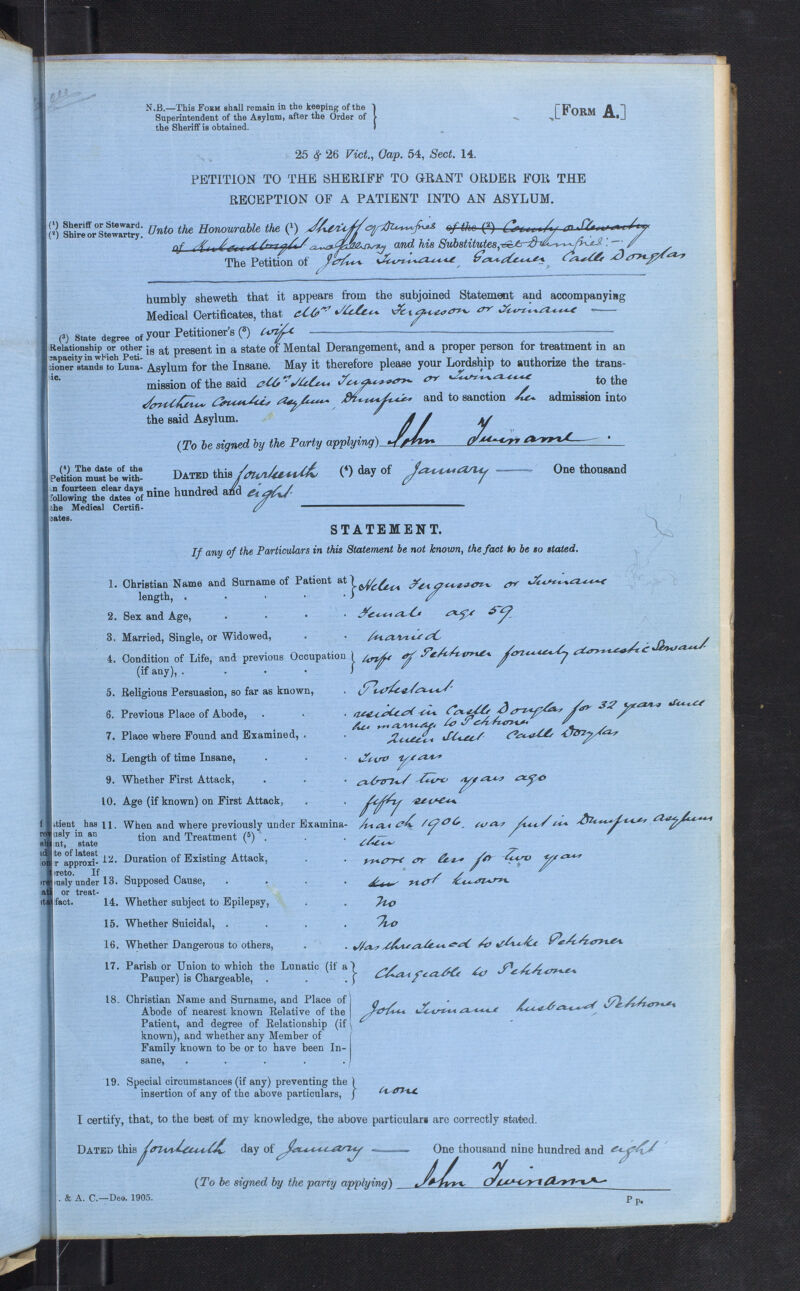 N.B.—This Form shall remain in the keeping of the
Superintendent of the Asylum, after the Order of
the Sheriff is obtained.
[Form A.]
25 & 26 Vict., Cap. 54, Sect. 14.
PETITION TO THE SHERIFF TO GRANT ORDER FOR THE
RECEPTION OF A PATIENT INTO AN ASYLUM.
(1) Sheriff or Steward.
(2) Shire or Stewartry.
Unto the Honourable the (1) Sheriff of Dumfries of the (2) County or Stewartry
of Kirkcudbright and Galloway and his Substitutes, at Dumfries:—
The Petition of John Twiname, Gardener, Castle Douglas
humbly sheweth that it appears from the subjoined Statement and accompanying
Medical Certificates, that Mrs Helen Fergusson or Twiname —
(3) State degree of
Relationship or other
capacity in which Peti-
tioner stands to Luna-
tic.
your Petitioner's (3) wife
is at present in a state of Mental Derangement, and a proper person for treatment in an
Asylum for the Insane. May it therefore please your Lordship to authorize the trans-
mission of the said Mrs Helen Fergusson or Twiname to the
Southern Counties Asylum Dumfries and to sanction her admission into
the said Asylum.
(To be signed by the Party applying) John Twiname.
(4) The date of the
Petition must be with-
in fourteen clear days
following the dates of
the Medical Certifi-
cates.
Dated this fourteenth (4) day of January — One thousand
nine hundred and eight.
STATEMENT.
If any of the Particulars in this Statement be not known, the fact to be so stated.
1. Christian Name and Surname of Patient at
length, . . . . . Helen Fergusson or Twiname
2. Sex and Age, . . . . Female age 59
3. Married, Single, or Widowed, . . Married
4. Condition of Life, and previous Occupation
(if any), . . . . . wife of Petitioner formerly domestic Servant
5. Religious Persuasion, so far as known, . Protestant
6. Previous Place of Abode, . . . resided in Castle Douglas for 32 years since
her marriage to Petitioner
7. Place where Found and Examined, . . Queen Street Castle Douglas
8. Length of time Insane, . . . Two years
9. Whether First Attack, . . . about two years ago
10. Age (if known) on First Attack, . . fifty seven
tient has
usly in an
nt, state
te of latest
r approxi-
ereto. If
usly under
or treat-
fact.
11. When and where previously under Examina-
tion and Treatment (5) . . . March 1906. was put in Dumfries Asylum
then
12. Duration of Existing Attack, . . more or less for two years
13. Supposed Cause, . . . . not known
14. Whether subject to Epilepsy, . . No
15. Whether Suicidal, . . . . No
16. Whether Dangerous to others, . . Has threatened to strike Petitioner
17. Parish or Union to which the Lunatic (if a
Pauper) is Chargeable, . . . Chargeable to Petitioner
18. Christian Name and Surname, and Place of
Abode of nearest known Relative of the
Patient, and degree of Relationship (if
known), and whether any Member of
Family known to be or to have been In-
sane, . . . . . John Twiname husband, Petitioner
19. Special circumstances (if any) preventing the
insertion of any of the above particulars, none
I certify, that, to the best of my knowledge, the above particulars are correctly stated.
Dated this fourteenth day of January — One thousand nine hundred and eight
(To be signed by the party applying) John Twiname
. & A. C.—Dec. 1905.
P p.